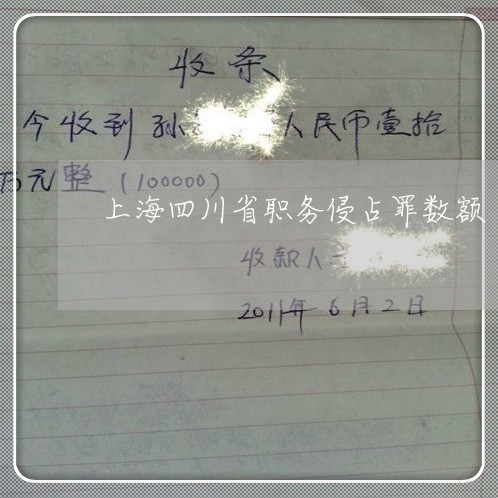 收条
今收到孙 人民币壹拾
万元整（100000）
上海四川省职务侵占罪数额
收款人
2011年6月2日